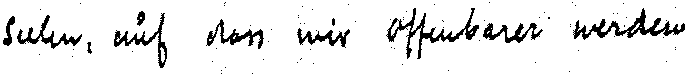 Seelen, auf dass wir offenbarer werden